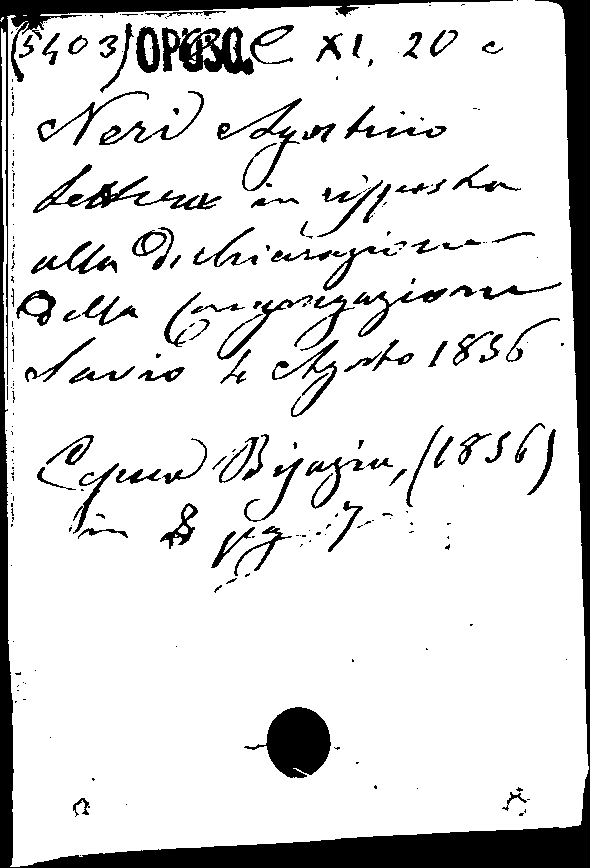 (5403) OPUSC. C XI, 20 c
Neri Agostino
Lettera in risposta
alla Dichiarazione
della Congregazione
Savio 4 Agosto 1856
Capua Bijazia, (1856)
in 8 pg 7